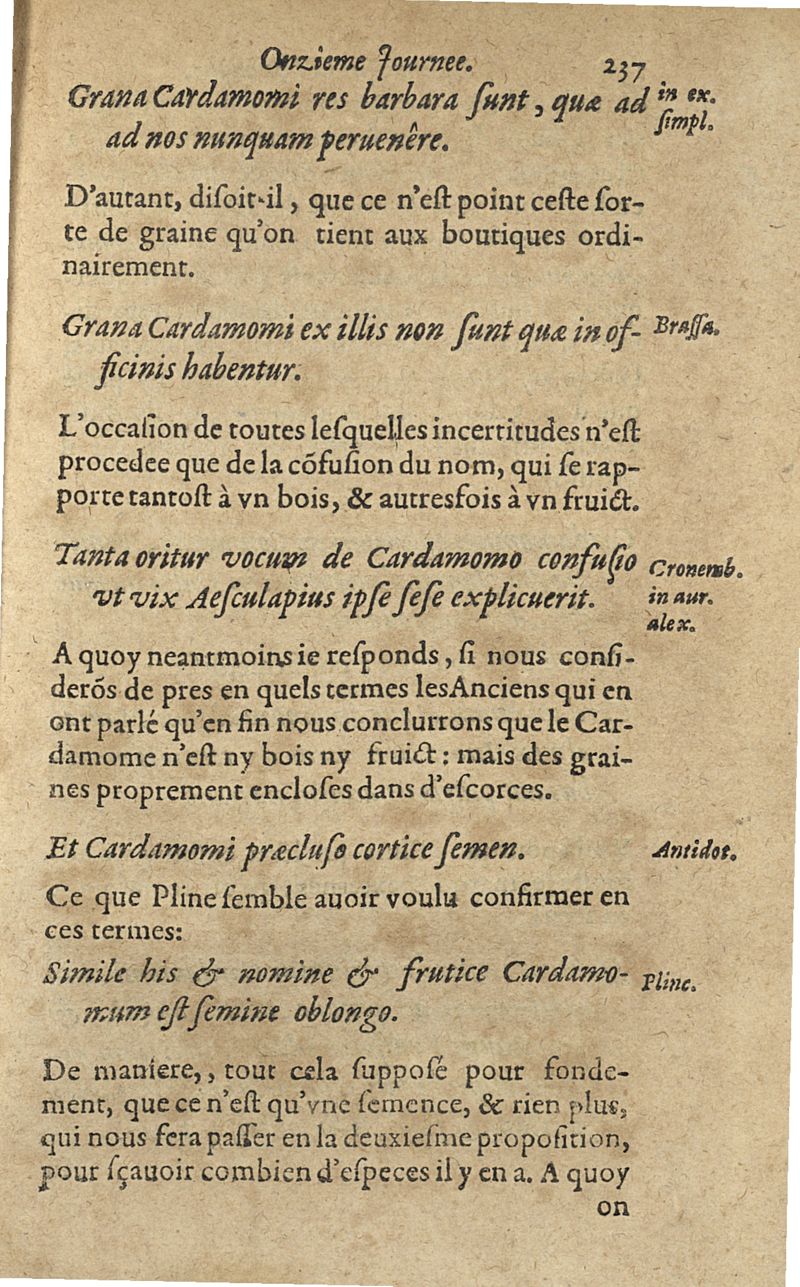 Onzieme Journee. 237
Grana Cardamomi res barbara ſunt, quæ ad in ex.
ad nos nunquam peruenêre. ſimpl.
D'autant, diſoit-il, que ce n'eſt point ceſte ſor-
te de graine qu'on tient aux boutiques ordi-
nairement.
Grana Cardamomi ex illis non ſunt quæ in of- Braſſa.
ficinis habentur.
L'occaſion de toutes leſquelles incertitudes n'eſt
procedee que de la cõfuſion du nom, qui ſe rap-
porte tantoſt à vn bois, & autresfois à vn fruict.
Tanta oritur vocum de Cardamomo confuſio Cronemb.
vt vix Aeſculapius ipſe ſeſe explicuerit. in aur.
alex.
A quoy neantmoins ie reſponds, ſi nous conſi-
derõs de pres en quels termes lesAnciens qui en
ont parlé qu'en fin nous conclurrons que le Car-
damome n'eſt ny bois ny fruict: mais des grai-
nes proprement encloſes dans d'eſcorces.
Et Cardamomi præcluſo cortice ſemen. Antidot.
Ce que Pline ſemble auoir voulu confirmer en
ces termes:
Simile his & nomine & frutice Cardamo- Pline.
mum eſt ſemine oblongo.
De maniere,, tout cela ſuppoſé pour fonde-
ment, que ce n'eſt qu'vne ſemence, & rien plus,
qui nous fera paſſer en la deuxieſme propoſition,
pour ſçauoir combien d'eſpeces il y en a. A quoy
on